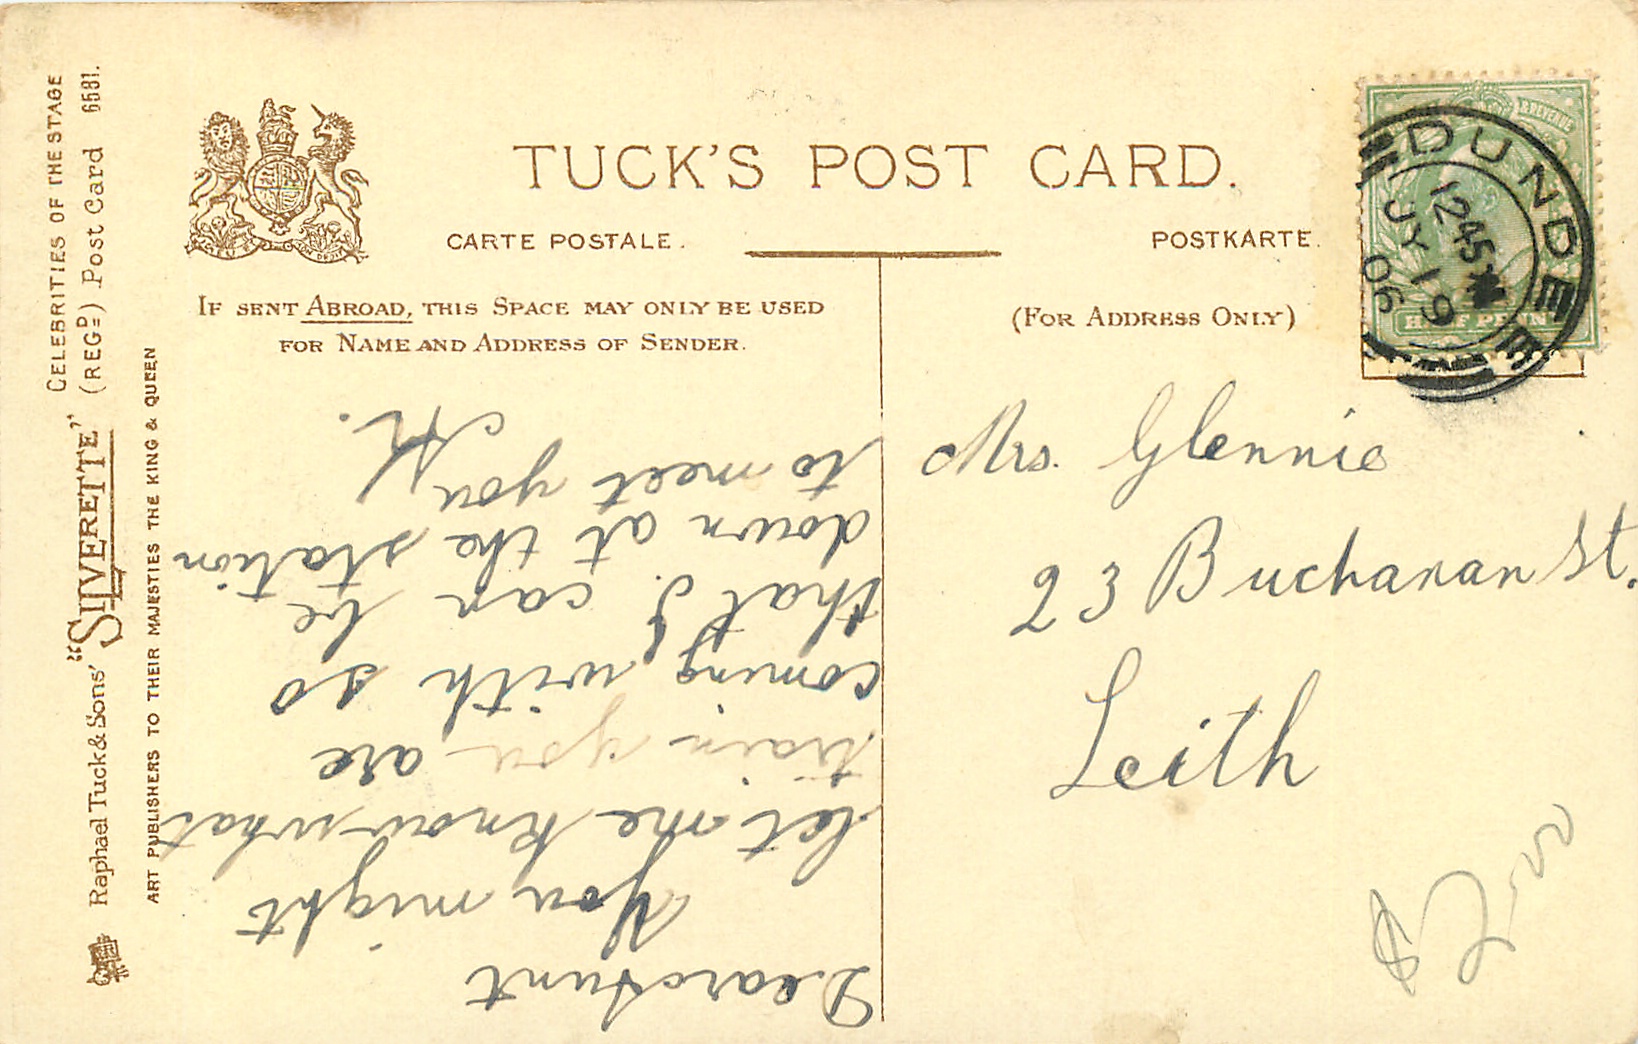 TUCK'S POST CARD.
CARTE POSTALE.
POSTKARTE.
IF SENT ABROAD, THIS SPACE MAY ONLY BE USED
FOR NAME AND ADDRESS OF SENDER.
(FOR ADDRESS ONLY)
CELEBRITIES OF THE STAGE
(REGD) Post Card 6581.
Raphael Tuck & Sons' "SILVERETTE"
ART PUBLISHERS TO THEIR MAJESTIES THE KING & QUEEN
REVENUE
HALF PENNY
DUNDEE
12 45
JY 19
06
Dear Aunt
You might
let me know what
train you are
coming with so
that I can be
down at the station
to meet you
Mrs. Glennie
23 Buchanan St.
Leith
$2.00